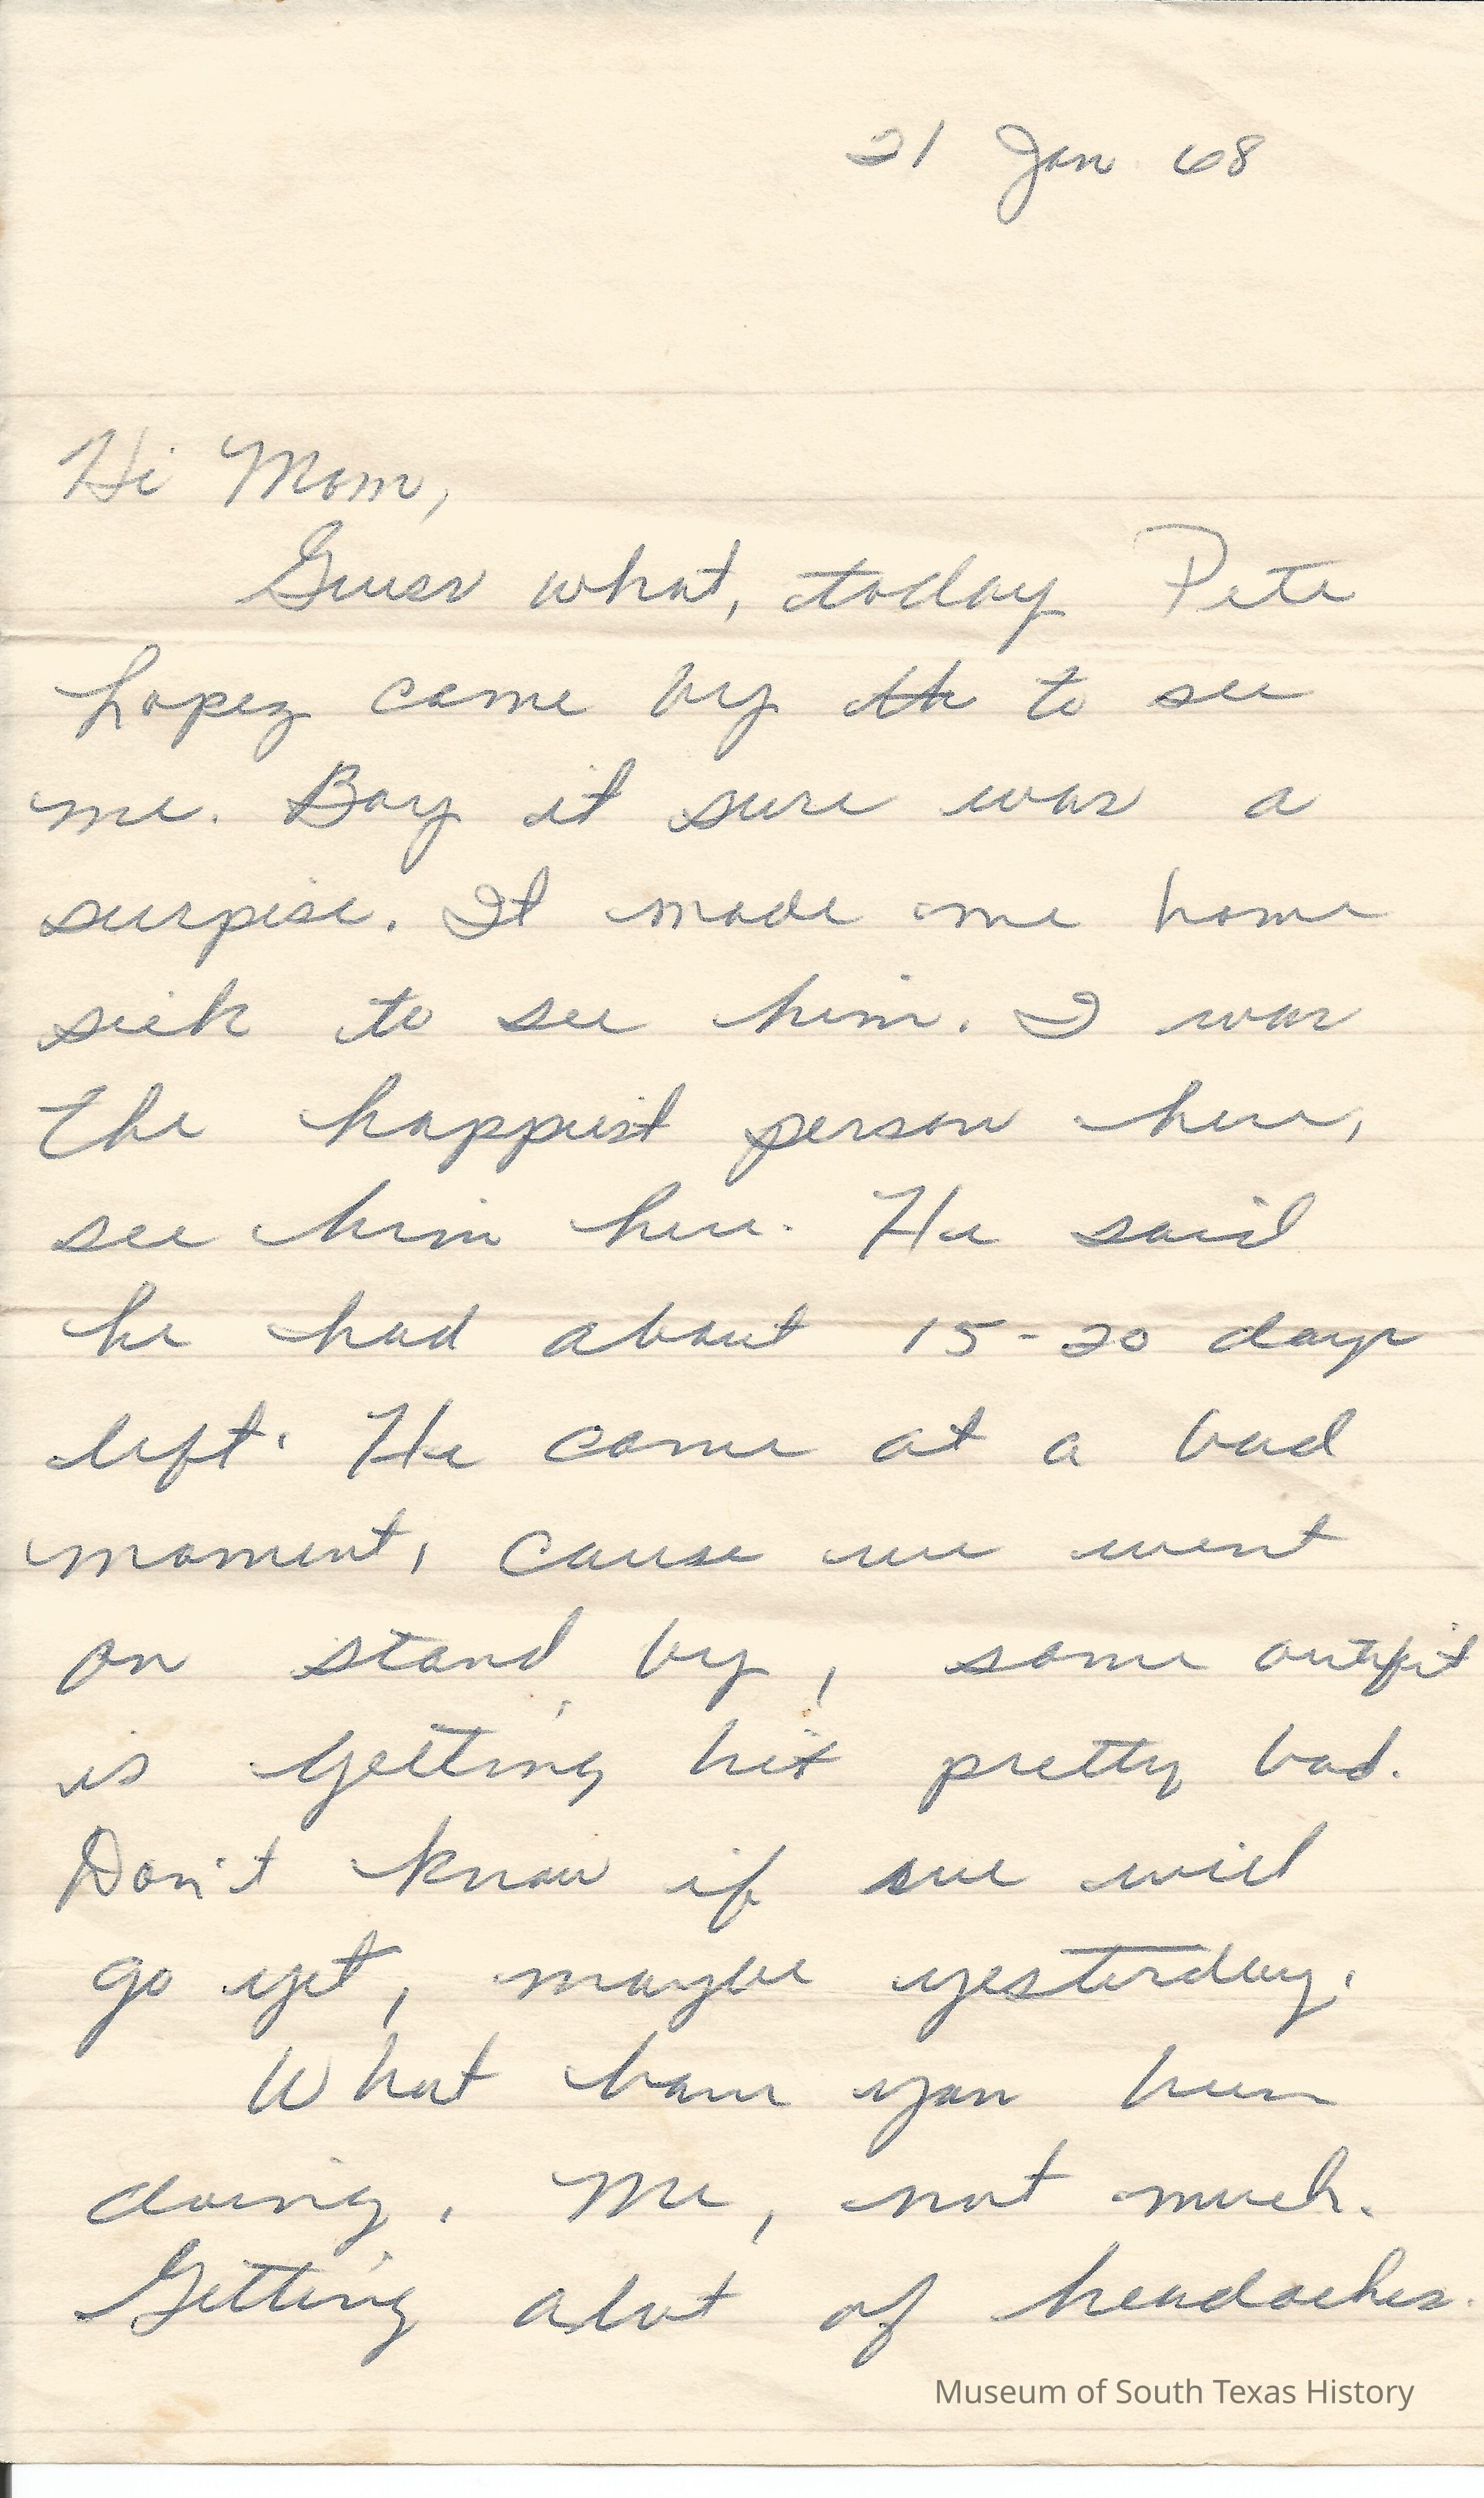 21 Jan 68
Hi Mom,
Guess what, today Pete
Lopez came by to see
me. Boy it sure was a
surpise. It made me home
sick to see him. I was
the happiest person here,
see him here. He said
he had about 15-20 days
left. He came at a bad
moment, cause we went
on stand by, some outfit
is getting hit pretty bad.
Don't know if we will
go yet, maybe yesterday.
What have you been
doing. Me, not much.
Getting alot of headaches.
Museum of South Texas History